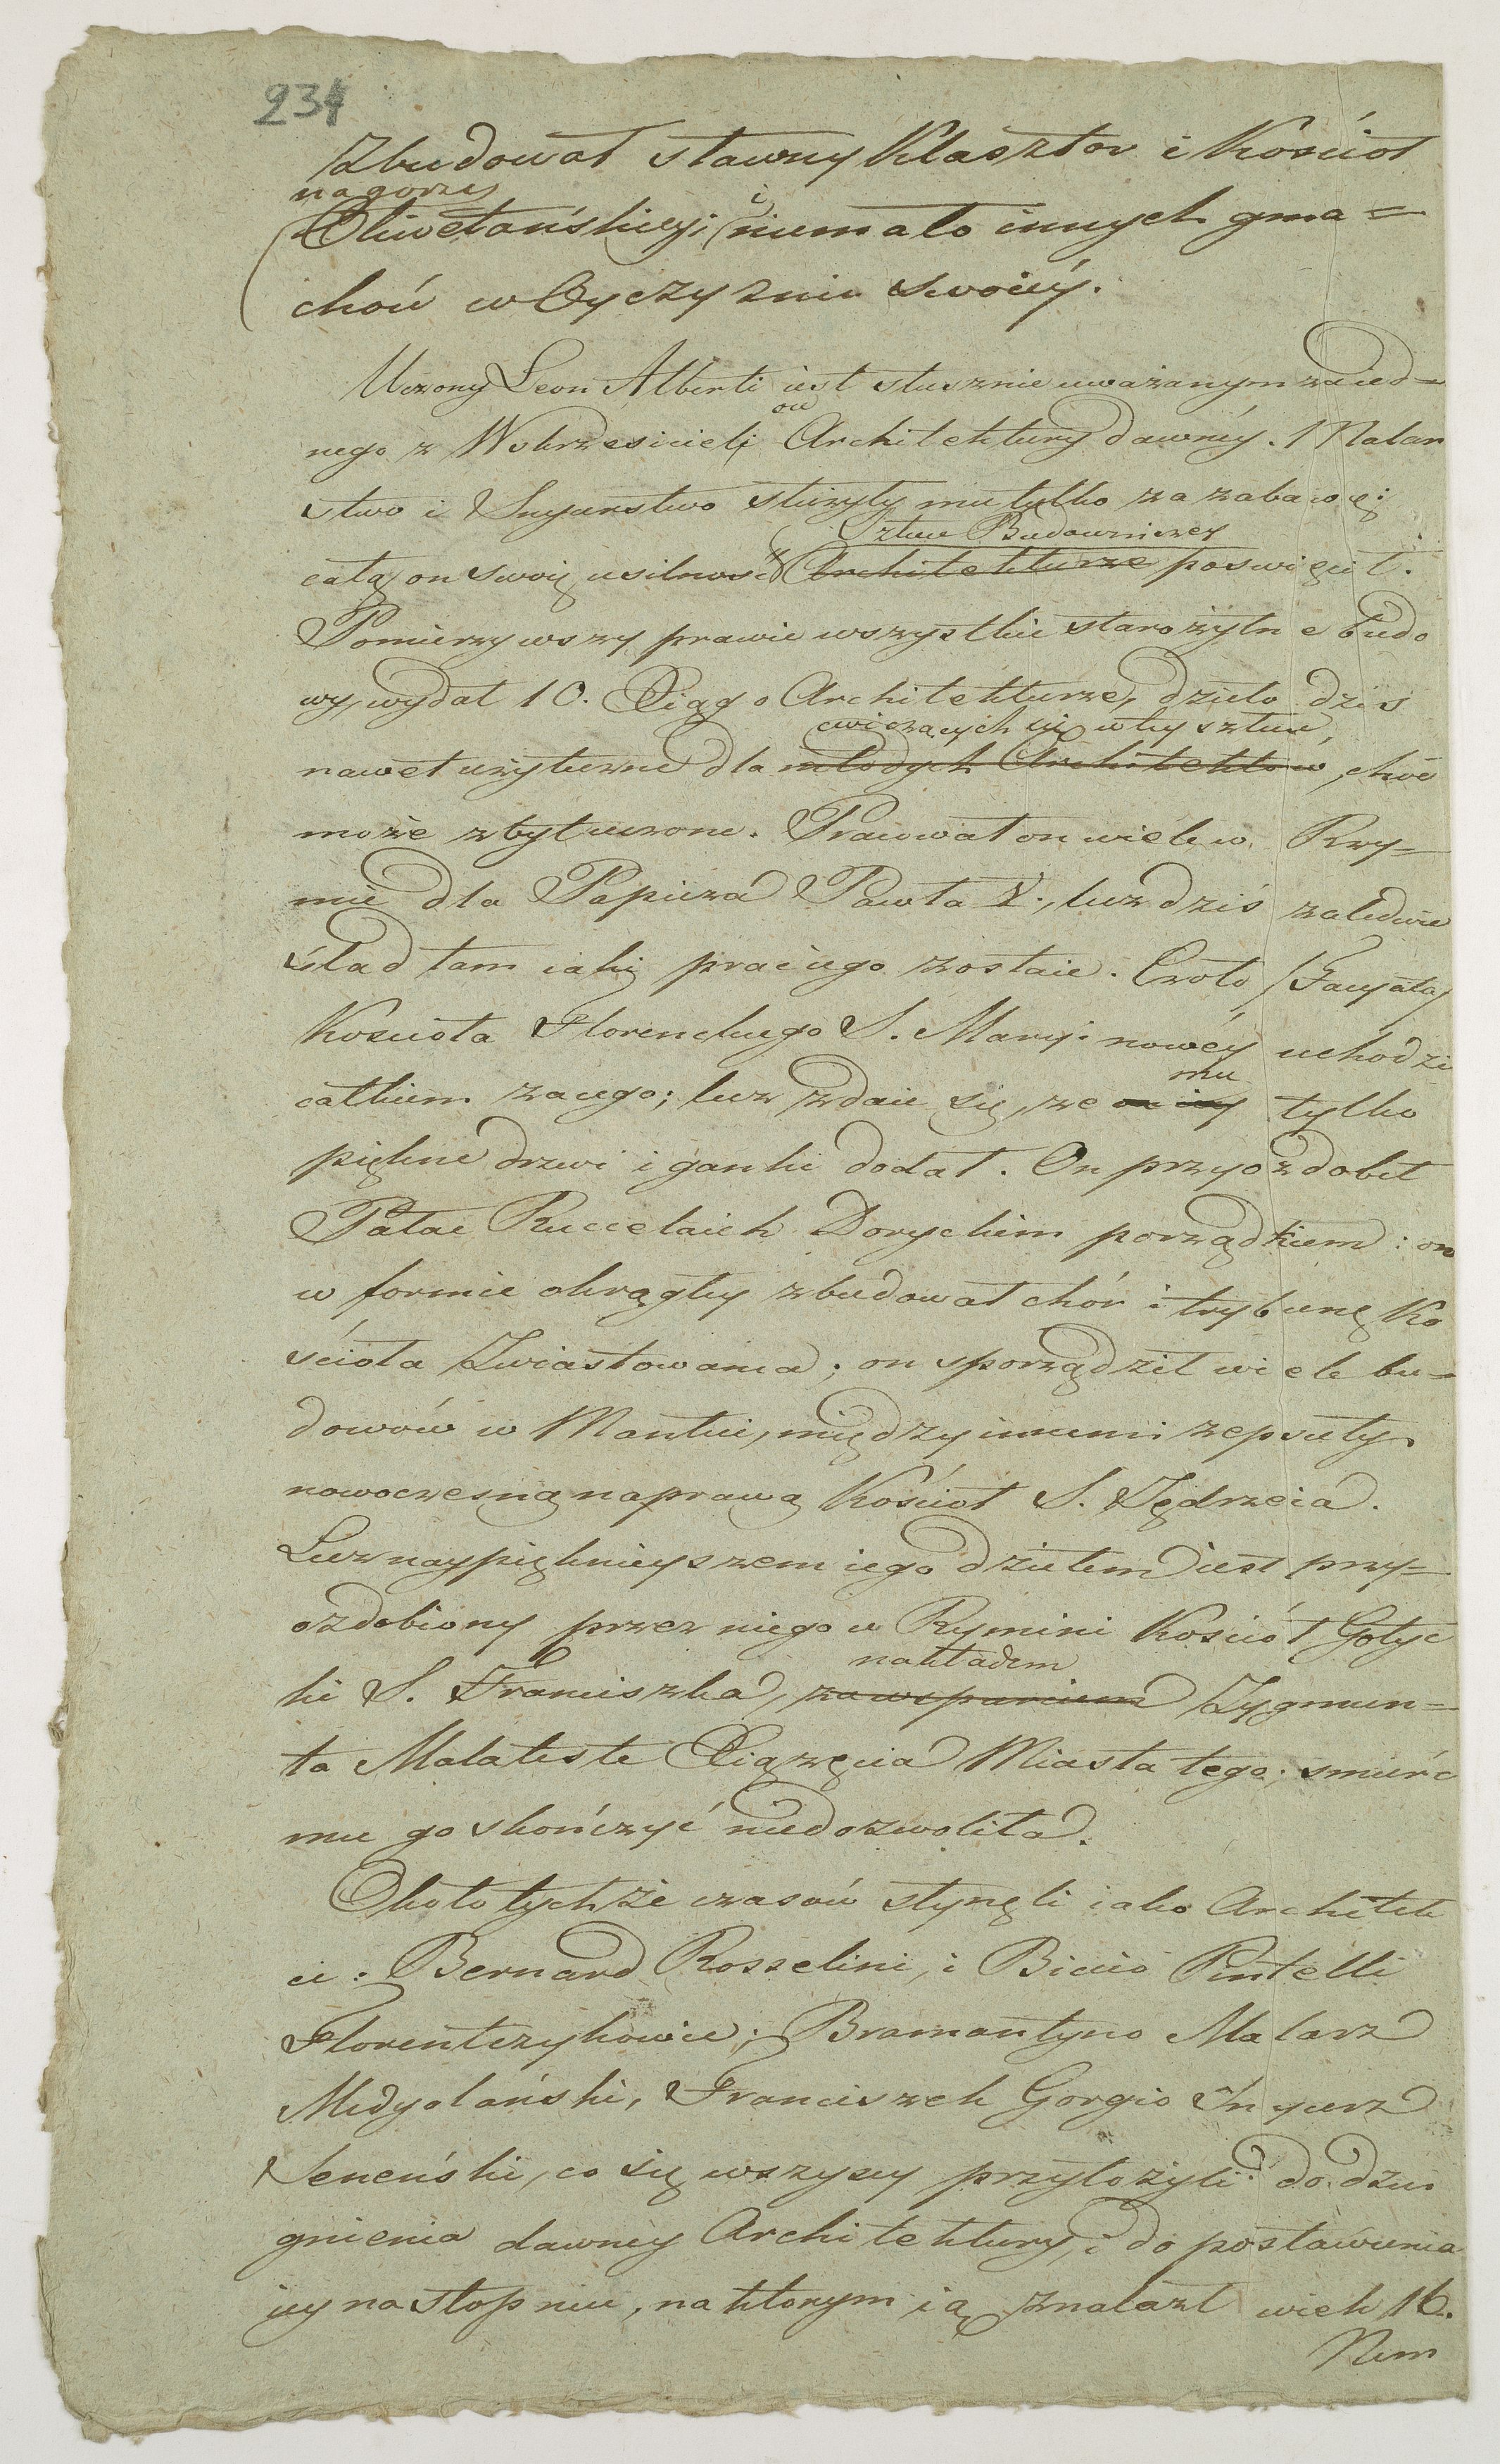 234
Zbudował sławny Klasztor i Kościoł
na gorze
Oliwetańskiey i niemało innych gma=
chów w Oyczyznie swoiéy.
Uczony Leon Alberti iest słusznie uważanym za ied=
ów
nego z Wskrzesicieli Architektury dawnéy. Malar
stwo i Snycerstwo służyły mu tylko za zabawę;
Sztuce Budowniczey
całą on swoię usilność Architekturze poswięcił.
Pomierzywszy prawie wszystkie starożytne budo
wy, wydał 10. Xiąg o Architekturze, dzieło dziś
cwiczących się w tey sztuce,
nawet użyteczne dla młodych Architektow, choć
może zbyt uczone. Pracował on wiele w Rzy=
mie dla Papieża Pawła V., lecz dziś zaledwie
ślad tam iakiś prac iego zostaie. Czoło /Facyata/
Kościoła Florenckiego S. Maryi nowéy uchodzi
mu
całkiem za iego; lecz zdaie się, że on iey tylko
piękne drzwi i ganki dodał. On przyozdobił
Pałac Ruccelaich Doryckim porządkiem: on
w formie okrągłey zbudował chór i trybunę Ko
ścioła Zwiastowania; on sporządził wiele bu=
dowów w Mantui, między innemi zepsuty
nowoczesną naprawą Kościoł S. Jędrzeia.
Lecz naypięknieyszem iego dziełem iest przy=
ozdobiony przez niego w Rymini Kościół Gotyc
nakładem
ki S. Franciszka, za wsparciem Zygmun=
ta Malateste Xiążęcia Miasta tego; smierć
mu go skończyć niedozwoliła.
Około tychże czasów słynęli iako Architek
ci: Bernard Rosselini, i Biccio Pintelli
Florentczykowie; Bramantyno Malarz
Medyolański, Franciszek Gorgio Snycerz
Seneński, co się wszyscy przyłożyli do dzwi
gnienia dawney Architektury, i do postawienia
iey na stopniu, na ktorym ią znalazł wiek 16.
Nim